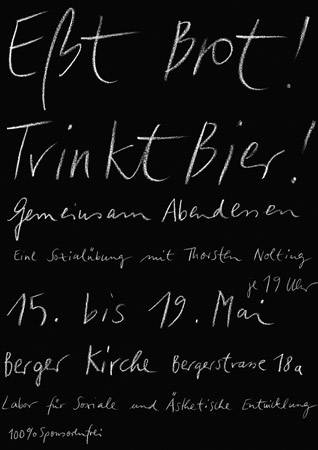 Eßt Brot!
Trinkt Bier!
Gemeinsam Abendessen
Eine Sozialübung mit Thorsten Nolting
je 19 Uhr
15. bis 19. Mai
Berger Kirche Bergerstrasse 18a
Labor für Soziale und Ästhetische Entwicklung
100% Sponsorenfrei